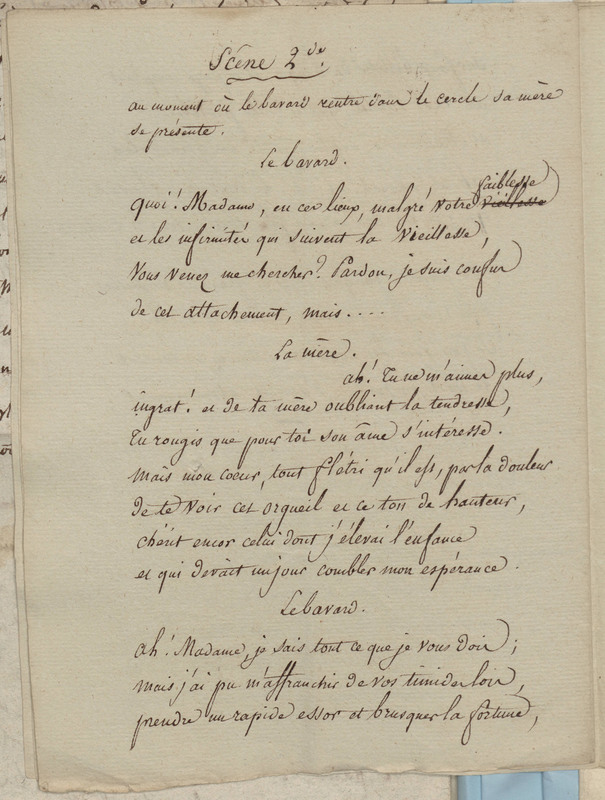 Scène 2de.
au moment où le bavard rentre dans le cercle sa mère
se présente.
Le bavard.
faiblesse
quoi! Madame, en ces lieux, malgré votre vieillesse
et les infirmités qui suivent la vieillesse,
Vous venez me chercher? Pardon, je suis confus
de cet attachement, mais....
La mère.
ah! tu ne m'aimes plus,
ingrat! et de ta mère oubliant la tendresse,
Tu rougis que pour toi son âme s'intéresse.
mais mon coeur, tout flétri qu'il est, par la douleur
de te voir cet orgueil et ce ton de hauteur,
chérit encor celui dont j'élevai l'enfance
et qui devait un jour combler mon espérance.
Le bavard.
ah! Madame, je sais tout ce que je vous dois;
mais j'ai pu m'affranchir de vos timides lois,
prendre un rapide essor et brusquer la fortune,